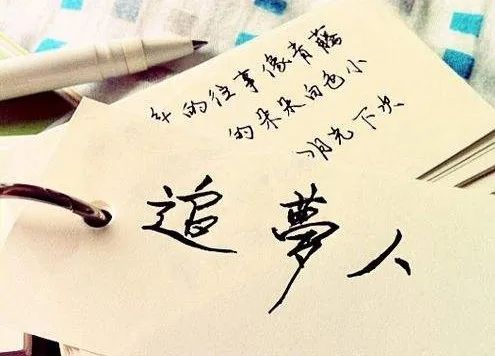 的往事像青藤
的朵朵白色小
月光下次
追夢人